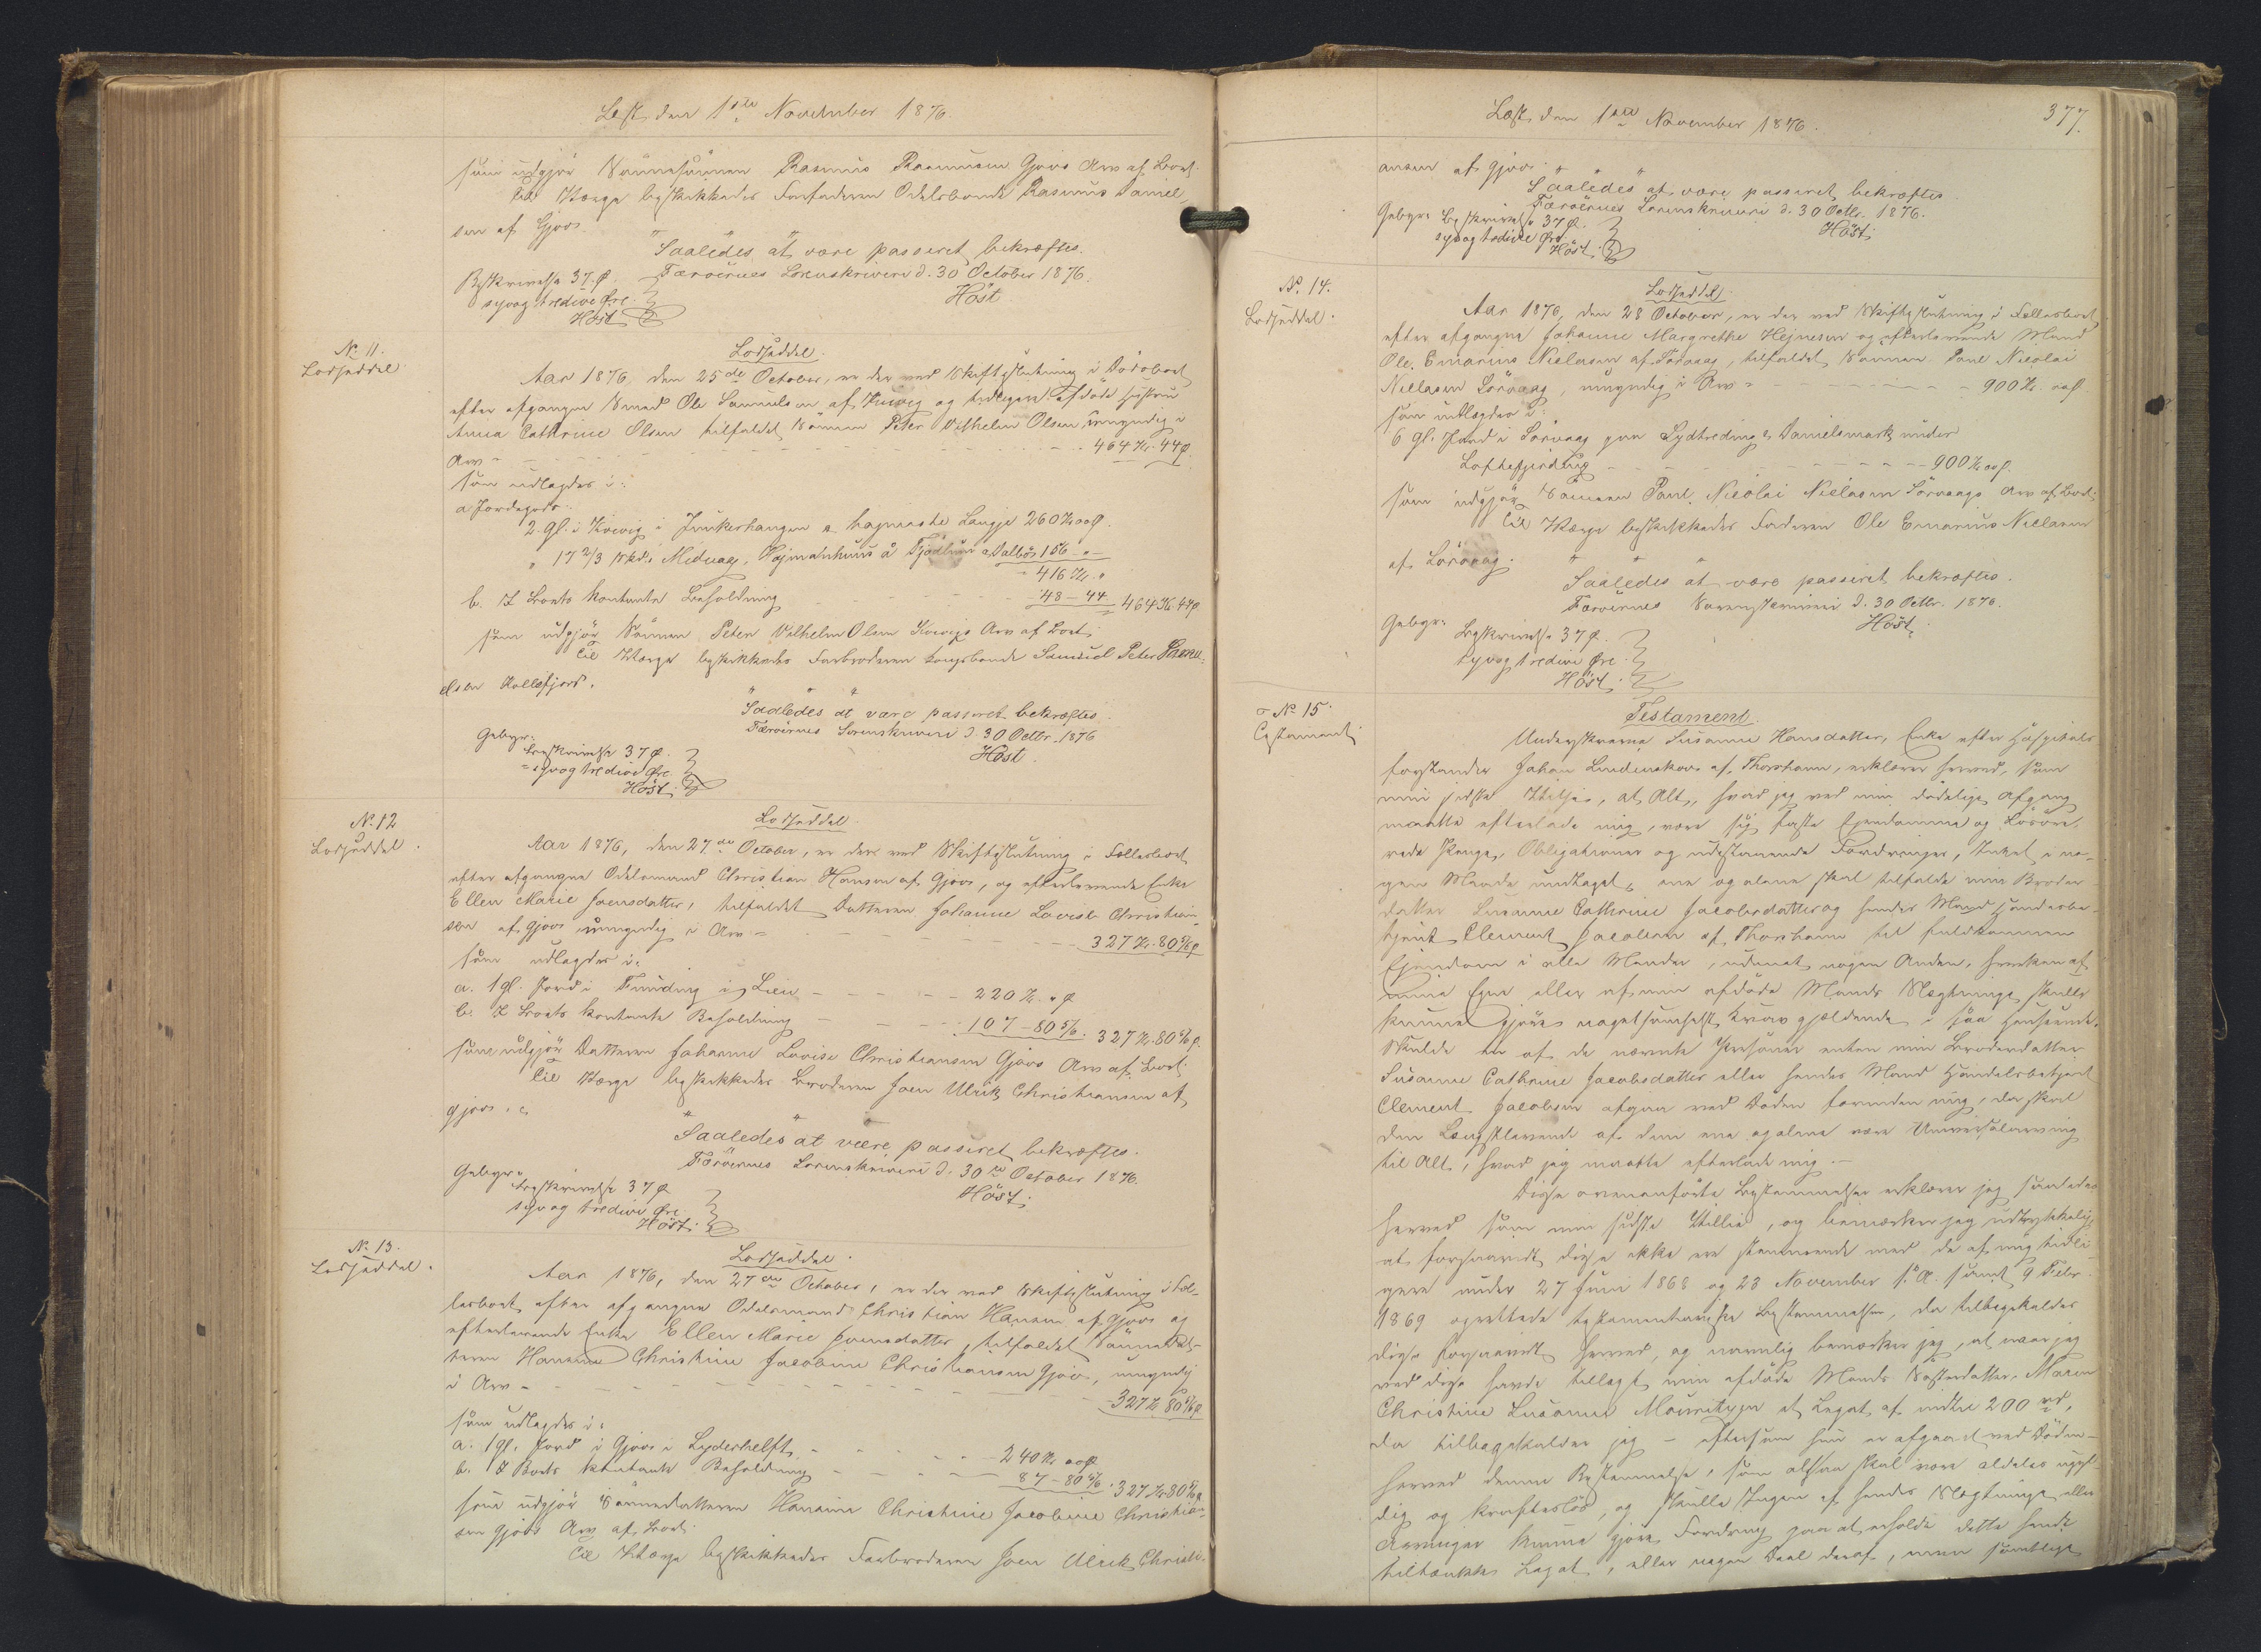 Læst den 1ste November 1876.
som udgjør Sønnesønnen Rasmus Rasmussen Gjovs Arv af Boet.
Til Værge beskikkedes Farfaderen Odelsbonde Rasmus Daniel-
sen af Gjov.
Saaledes at være passeret bekræftes.
Beskrivelse 37 Ø. Færøernes Sorenskriveri d. 30 October 1876.
syv og tredive Øre. Höst
Höst
No 11.
Lodseddel.
Lodseddel.
Aar 1876, den 25de October, er der ved Skifteslutning i Dødsboet
efter afgangne Smed Ole Samuelsen af Kvivig og tidligere afdøde Hustru
Anna Cathrine Olsen tilfaldet Sønnen Peter Vilhelm Olsen umyndig i
Arv - - - 464 Kr. 44 Ø.
som udlagdes i:
a. Jordegods
2 gl. i Kvivig i Junkerhaugen a 260 Kr 00 Ø.
" 17 2/3 Skd. i Midvaag, 156 "
416 Kr. "
b. I Boets kontante Beholdning 48 - 44 464 Kr. 44 Ø
som udgjør Sønnen Peter Vilhelm Olsen Kvivigs Arv af Boet.
Til Værge beskikkedes Farbroderen Kongsbonde Samuel Peter Samu-
elsen Kollefjord.
Saaledes at være passeret bekræftes.
Færøernes Sorenskriveri d. 30 Octbr. 1876
Gebyr:
Beskrivelse 37 Ø. Höst.
syv og tredive Øre.
Höst
No 12
Lodseddel.
Lodseddel.
Aar 1876, den 27de October, er der ved Skifteslutning i Fællesboet
efter afgangne Odelsmand Christian Hansen af Gjov, og efterlevende Enke
Ellen Marie Joensdatter, tilfaldet Datteren Johanne Lovise Christian-
sen af Gjov umyndig i Arv - - - 327 Kr. 80 5/6 Ø
som udlagdes i:
a. 1 gl. Jord i Funding i Lien - - - 220 Kr. " Ø
b. I Boets kontante Beholdning - - - 107 - 80 5/6. 327 Kr. 80 5/6 Ø.
som udgjør Datteren Johanne Lovise Christiansen Gjovs Arv af Boet.
Til Værge beskikkedes Broderen Joen Ulrik Christiansen af
Gjov.
Saaledes at være passeret bekræftes.
Færøernes Sorenskriveri d. 30te October 1876.
Gebyr:
Beskrivelse 37 Ø Höst.
syv og tredive Øre
Höst.
No 13.
Lodseddel.
Lodseddel.
Aar 1876, den 27de October, er der ved Skifteslutning i Fæl-
lesboet efter afgangne Odelsmand Christian Hansen af Gjov og
efterlevende Enke Ellen Marie Joensdatter, tilfaldet Sønnedat-
teren Hansine Christine Jacobine Christiansen Gjov, umyndig
i Arv - - - 327 Kr 80 5/6 Ø
som udlagdes i:
a. 1 gl. Jord i Gjov i Lyderhelft - - - 240 Kr 00 Ø
b. I Boets kontante Beholdning - - - 87 - 80 5/6. 327 Kr. 80 5/6 Ø
som udgjør Sønnedatteren Hansine Christine Jacobine Christian-
sen Gjovs Arv af Boet.
Til Værge beskikkedes Farbroderen Joen Ulrik Christi-
Læst den 1ste November 1876.
377.
ansen af Gjov.
Saaledes at være passeret bekræftes
Færøernes Sorenskriveri d. 30 Octbr. 1876.
Gebyr: Beskrivelse 37 Ø. Höst.
syv og tredive Øre.
Höst.
No. 14.
Lodseddel.
Lodseddel.
Aar 1876, den 28 October, er der ved Skifteslutning i Fællesboet
efter afgangne Johanne Margrethe Hejnesen og efterlevende Mand
Ole Emarius Niclasen af Sørvaag, tilfaldet Sønnen Poul Nicolai
Niclasen Sørvaag, umyndig i Arv - - - 900 Kr. 00 Ø.
som udlagdes i:
6 gl. Jord i Sørvaag paa Lydtreding & Danielsmark under
Loftefjerding - - - 900 Kr 00 Ø.
som udgjør Sønnen Poul Nicolai Niclasen Sørvaags Arv af Boet.
Til Værge beskikkedes Faderen Ole Emarius Niclasen
af Sørvaag.
Saaledes at være passeret bekræftes.
Færøernes Sorenskriveri d. 30 Octbr. 1876.
Gebyr:
Beskrivelse 37 Ø. Höst.
syv og tredive Øre.
Höst.
No 15.
Testament
Testament.
Underskrevne Susanne Hansdatter, Enke efter Hospitals
forstander Johan Lindenskov af Thorshavn, erklærer herved, som
min sidste Villie, at Alt, hvad jeg ved min dødelige Afgang
maatte efterlade mig, være sig faste Ejendomme og Løsøre,
rede Penge, Obligationer og udestaaende Fordringer, Intet i no-
gen Maade undtaget, ene og alene skal tilfalde min Broder-
datter Susanne Cathrine Jacobsdatter og hendes Mand Handelsbe-
tjent Clement Jacobsen af Thorshavn til fuldkommen
Ejendom i alle Maader, uden at nogen Anden, hverken af
mine Egne eller af min afdøde Mands Slægtninge skulle
kunne gjøre nogetsomhelst Krav gjældende i saa Henseende.
Skulde en af de nævnte Personer enten min Broderdatter
Susanne Cathrine Jacobsdatter eller hendes Mand Handelsbetjent
Clement Jacobsen afgaa ved Døden forinden mig, da skal
den Længstlevende af dem ene og alene være Universalarving
til Alt, hvad jeg maatte efterlade mig. —
Disse ovenanførte Bestemmelser erklærer jeg saaledes
herved som min sidste Villie, og bemærker jeg udtrykkelig,
at forsaavidt disse ikke ere stemmende med de af mig tidli-
gere under 27 Juni 1868 og 23 November s. A. samt 9 Febr.
1869 oprettede testamentariske Bestemmelser, da tilbagekaldes
disse forsaavidt herved, og navnlig bemærker jeg, at naar jeg
ved disse havde tillagt min afdøde Mands Søsterdatter Maren
Christine Susanne Mouritzen et Legat af indtil 200 rd,
da tilbagekalder jeg - eftersom hun er afgaaet ved Døden -
herved denne Bestemmelse, som altsaa skal være aldeles ugyl-
dig og kraftesløs, og skulle Ingen af hendes Slægtninge eller
Arvinger kunne gjøre Fordring paa at erholde dette hende
tiltænkte Legat, eller nogen Deel deraf, men samtlige